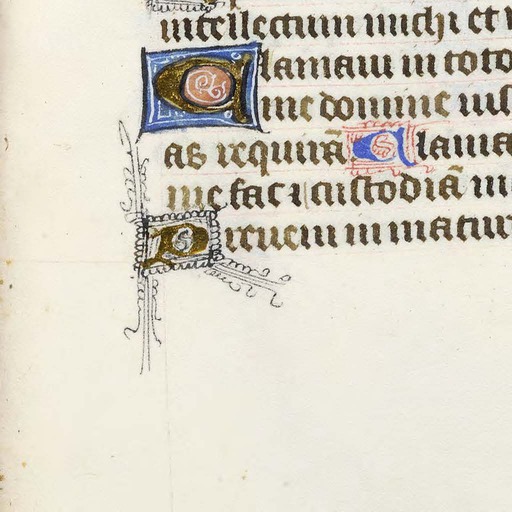 intellectum michi et
Clamaui in toto
me domine ius
as requirã Clama
me fac ⁊ custodiã m
Preueni in matur